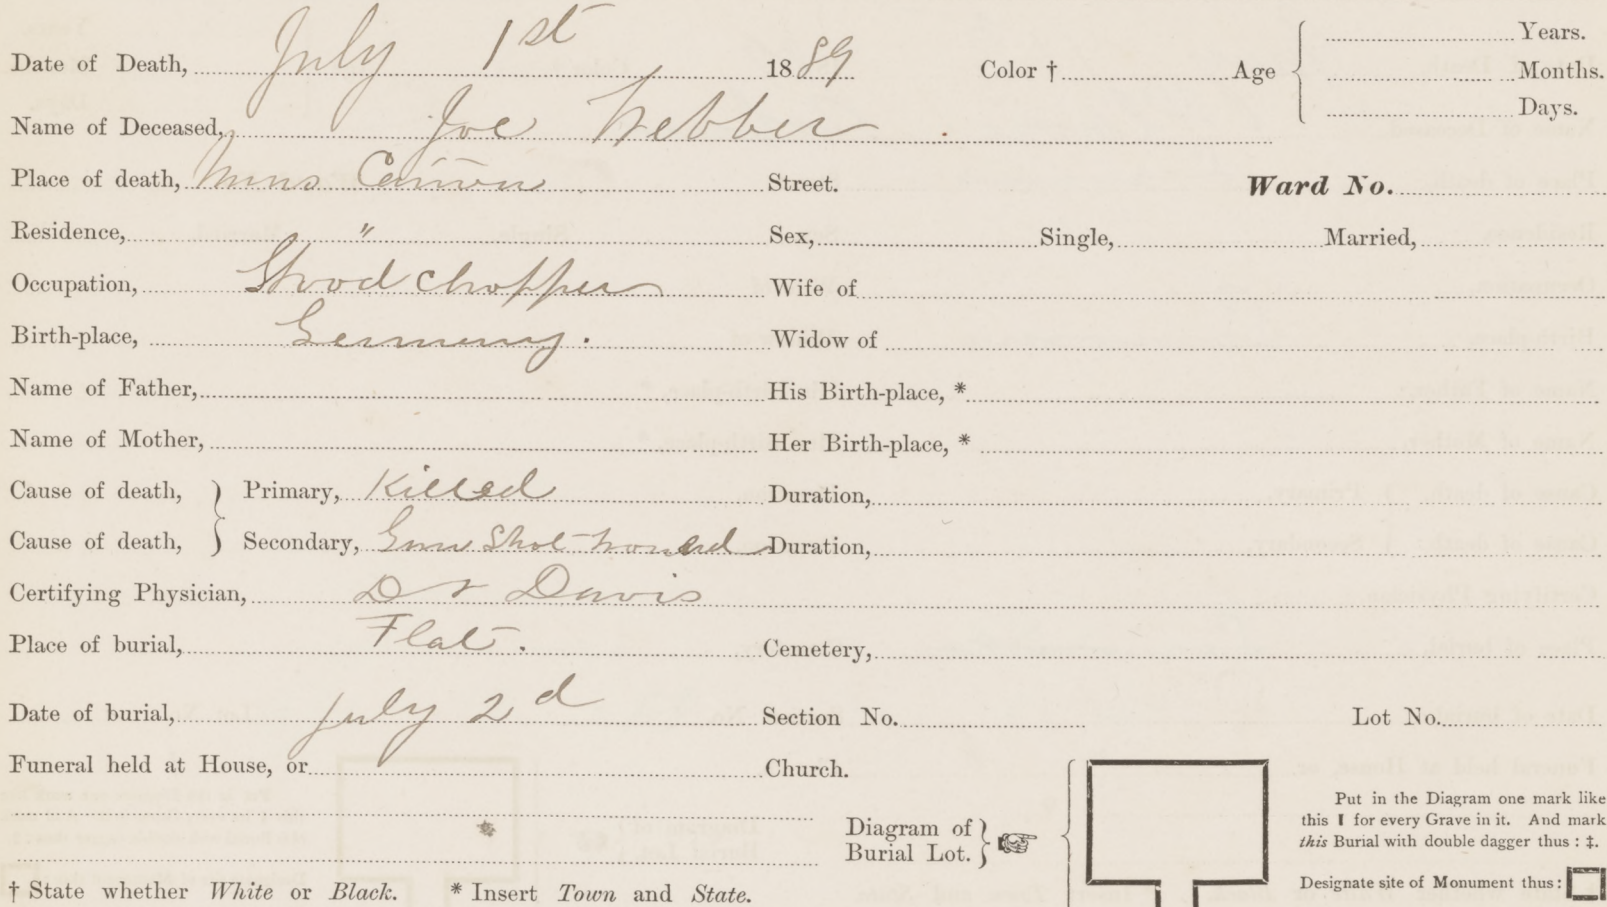 Date of Death, July 1st 1889 Color † Age Years.
Months.
Days.
Name of Deceased, Joe Webber
Place of death, Street. Ward No.
Residence, " Sex, Single, Married,
Occupation, Wood chopper Wife of
Birth-place, Germany. Widow of
Name of Father, His Birth-place, *
Name of Mother, Her Birth-place, *
Cause of death, } Primary, Killed Duration,
Cause of death, } Secondary, Gun Shot wound Duration,
Certifying Physician, Dr Davis
Place of burial, Flat. Cemetery,
Date of burial, July 2d Section No. Lot No.
Funeral held at House, or Church.
Diagram of
Burial Lot. }
Put in the Diagram one mark like
this I for every Grave in it. And mark
this Burial with double dagger thus : ‡.
Designate site of Monument thus :
† State whether White or Black. * Insert Town and State.